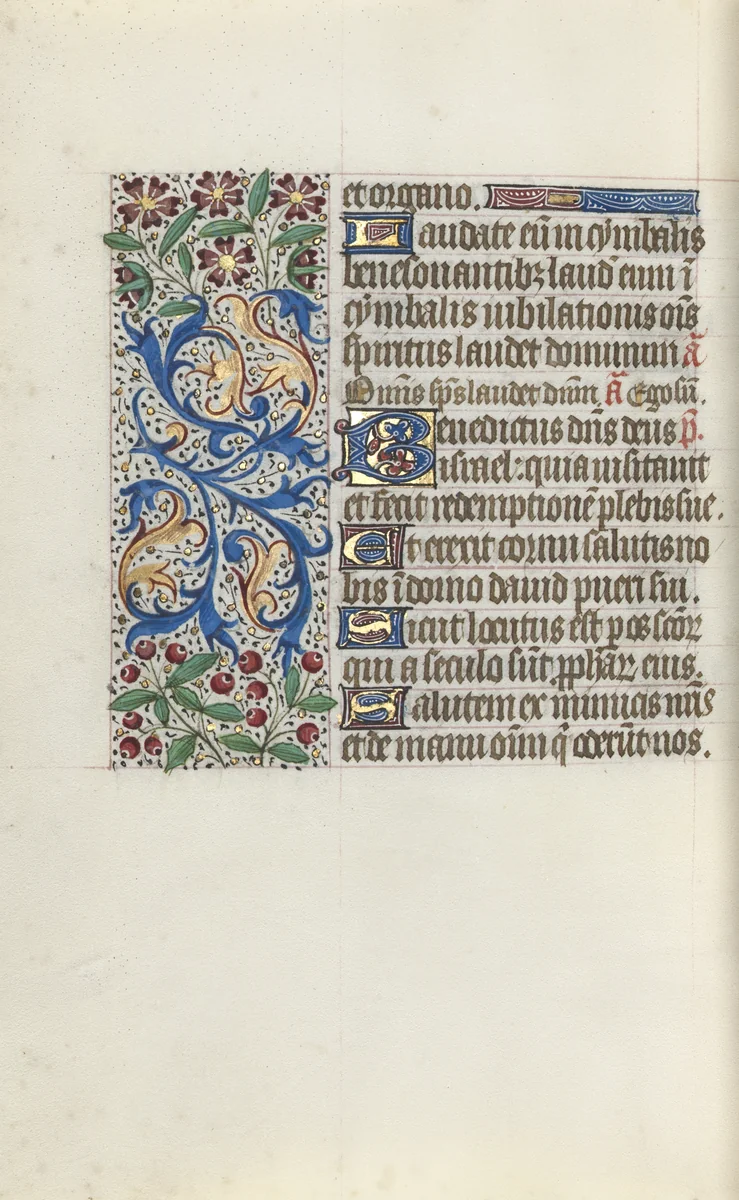 et organo.
Laudate eū in cymbalis
benesonantibꝫ laud' eum ī
cymbalis iubilationis oīs
spiritus laudet dominum ā
Omīs sp̄s laudet dn̄m. ā Ego sū.
Benedictus dn̄s deus p̄.
israel: quia uisitauit
et fecit redemptionē plebis sue.
Et erexit cornu salutis no
bis ī domo dauid pueri sui.
Sicut locutus est p os sctōꝝ
qui a seculo sūt ꝓphāꝝ eius.
Salutem ex inimicis nr̄is
et de manu oīm q̄ oderūt nos.